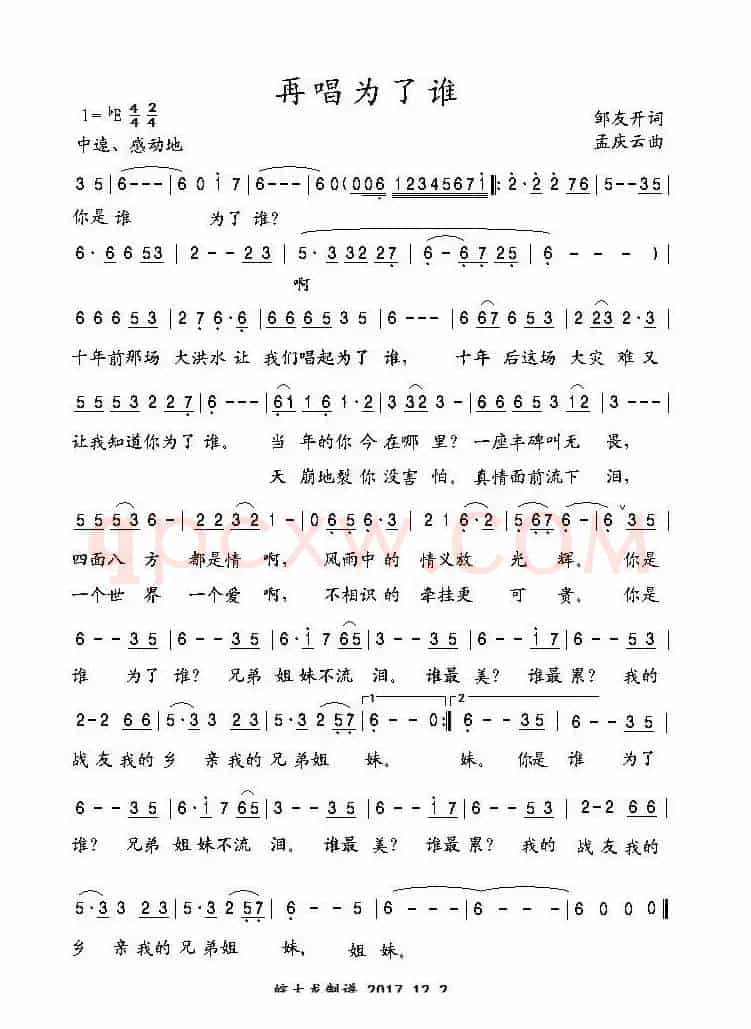 再唱为了谁
1=♭E 4/4 2/4
邹友开词
中速、感动地
孟庆云曲
3 5 | 6 - - - | 6 0 i 7 | 6 - - - | 6 0 ( 0 0 6 1 2 3 4 5 6 7 i ‖: 2 · 2 2 7 6 | 5 - - 3 5 |
你是谁 为了谁?
6 · 6 6 5 3 | 2 - - 2 3 | 5 · 3 3 2 2 7 | 6 - 6 7 2 5 | 6 - - - ) |
啊
6 6 6 5 3 | 2 7 6 · 6 | 6 6 6 5 3 5 | 6 - - - | 6 6 7 6 5 3 | 2 2 3 2 · 0 |
十年前那场 大洪水让 我们唱起为了 谁, 十年 后这场 大灾 难又
5 5 5 3 2 2 7 | 6 - - - | 6 1 1 6 1 · 2 | 3 - 1 2 3 - | 6 6 6 5 3 1 2 | 3 - - - |
让我知道你为了 谁。 当 年的你 今在哪 里? 一座丰碑叫无 畏,
天 崩地裂你 没害 怕。真情面前流下 泪,
5 5 5 3 6 - | 2 2 3 2 1 - | 0 6 5 6 · 3 | 2 1 6 · 2 | 5 6 7 6 - | 6 - - 3 5 |
四面八 方 都是情 啊, 风雨中的 情义放 光 辉。 你是
一个世 界 一个爱 啊, 不相识的 牵挂更 可 贵。 你是
6 - - 3 5 | 6 - - 3 5 | 6 · i 7 6 5 | 3 - - 3 5 | 6 - - i 7 | 6 - - 3 5 |
谁 为了 谁? 兄弟 姐 妹不流 泪。 谁最 美? 谁最 累? 我的
2 - 2 6 6 | 5 · 3 3 2 3 | 5 · 3 3 2 5 7 | 1 6 - - 0 :‖ 2 6 - - 3 5 | 6 - - 3 5 |
战友我的乡 亲我的兄弟姐 妹。 妹。 你是 谁 为了
6 - - 3 5 | 6 · i 7 6 5 | 3 - - 3 5 | 6 - - i 7 | 6 - - 3 5 | 2 - 2 6 6 |
谁? 兄弟 姐 妹不流 泪。 谁最 美? 谁最 累? 我的 战友我的
5 · 3 3 2 3 | 5 · 3 3 2 5 7 | 6 - - 5 | 6 - - - | 6 - - - | 6 0 0 0 ‖
乡 亲我的兄弟姐 妹, 姐 妹。
qpcxw.com
2017.12.2